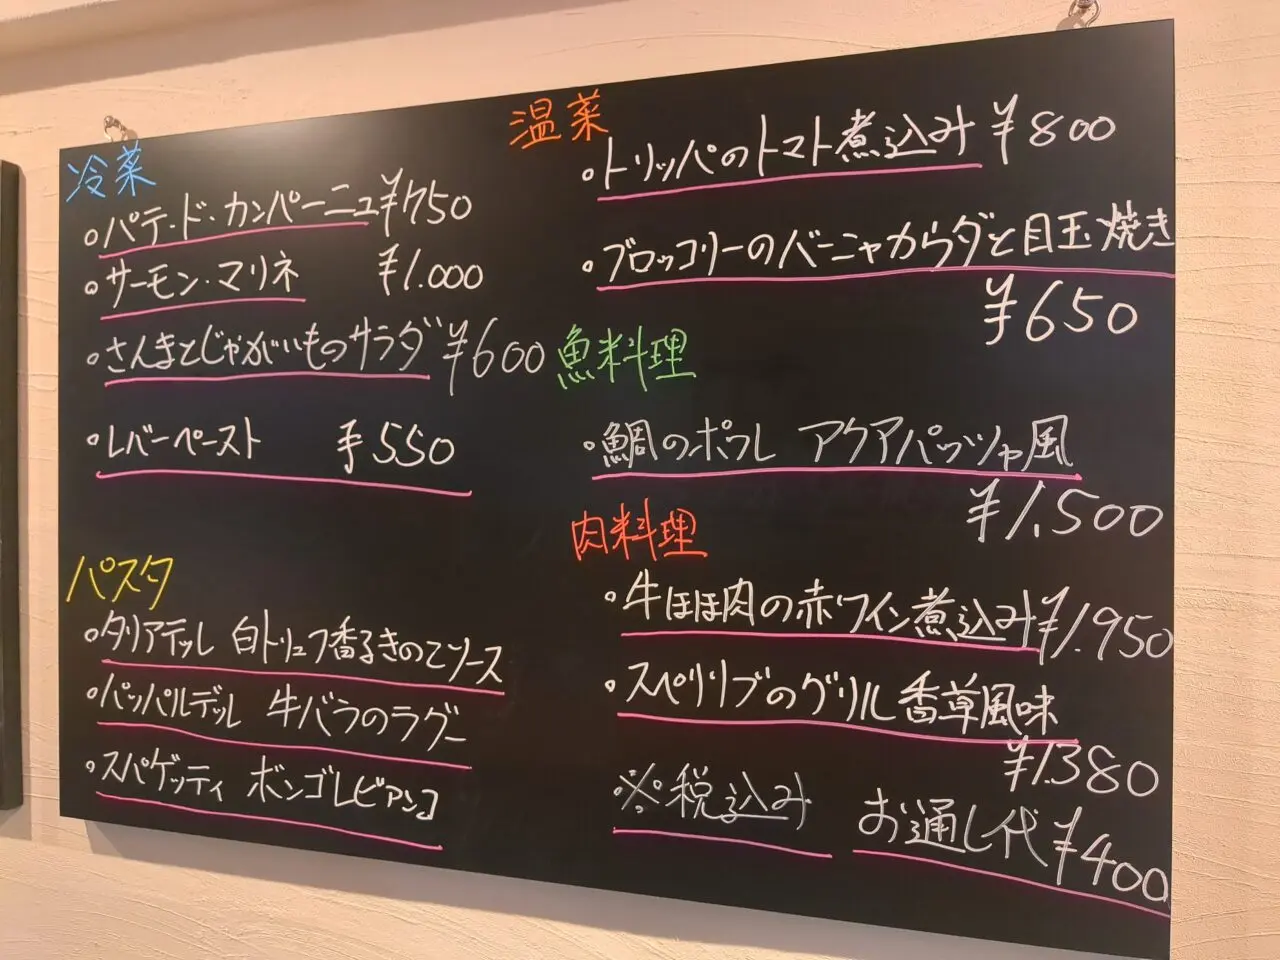 冷菜
・パテ・ド・カンパーニュ ¥750
・サーモン・マリネ ¥1.000
・さんまとじゃがいものサラダ ¥600
・レバーペースト ¥550
パスタ
・タリアテッレ 白トリュフ香るきのこソース
・パッパルデッレ 牛バラのラグー
・スパゲッティ ボンゴレビアンコ
温菜
・トリッパのトマト煮込み ¥800
・ブロッコリーのバーニャカウダと目玉焼き
¥650
魚料理
・鯛のポワレ アクアパッツァ風
¥1,500
肉料理
・牛ほほ肉の赤ワイン煮込み ¥1.950
・スペアリブのグリル 香草風味
¥1.380
※税込み お通し代 ¥400